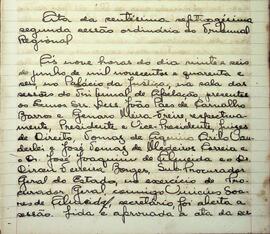 Acta da centesima septuagesima
segunda sessão ordinaria do Tribunal
Regional
Ás nove horas do dia vinte e seis
de junho de mil novecentos e quarenta e
seis, no Palacio da Justiça, na sala das
sessões do Tribunal de Apelação, presentes
os Exmos Srs. Des. João Paes de Carvalho
Barros e Genaro Freire, respectiva-
mente, Presidente e Vice-Presidente, Juizes
de Direito Thomaz de Aquino
e José Tomaz de Medeiros Correia e
o Dr. José Joaquim de Almeida e o Dr.
Dirceu Ferreira Borges, Sub-Procurador
Geral do Estado, no exercicio de Pro-
curador Geral, commigo Vinicius Soa-
res de Almeida, secretário foi aberta a
sessão. Lida e aprovada a ata da ses